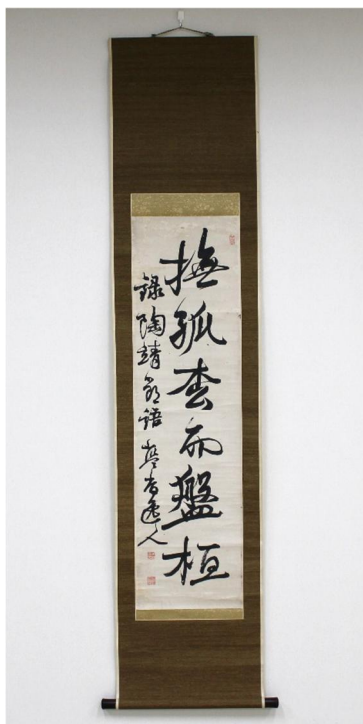 撫孤松而盤桓
録陶靖節語
逸人